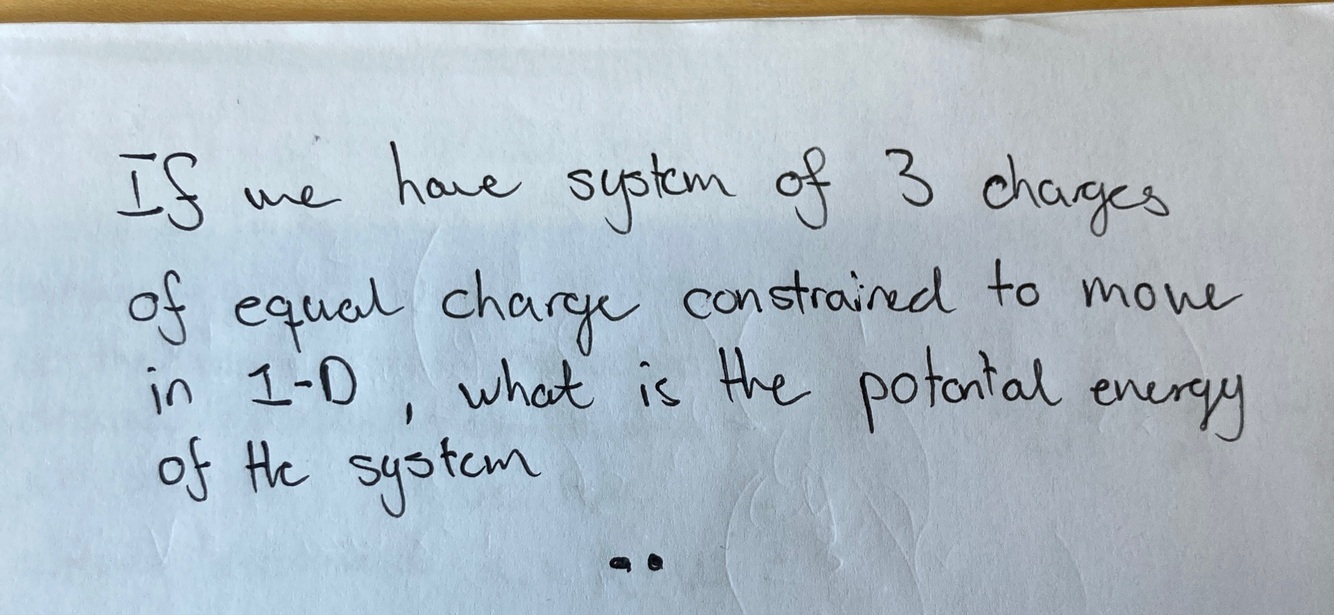 If we have system of 3 charges
of equal charge constrained to move
in 1-D, what is the potental energy
of the system